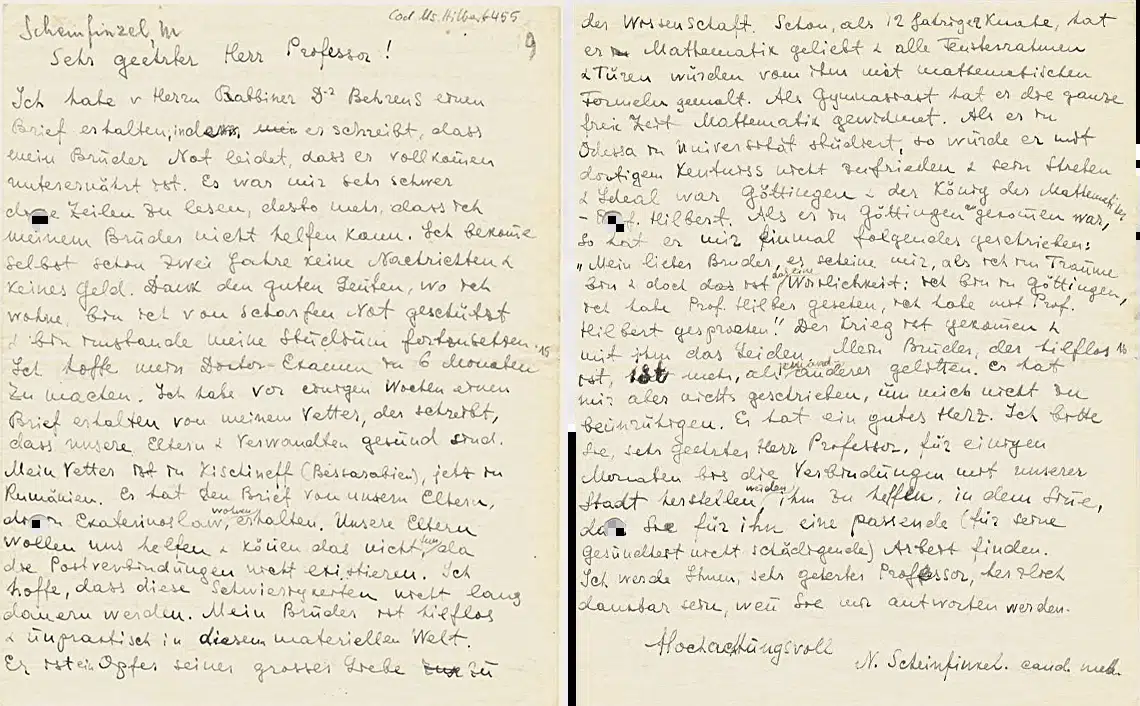 Cod. Ms. Hilbert 455
Scheinfinzel, M
9
Sehr geehrter Herr Professor!
Ich habe v Herrn Rabbiner Dr Behrens einen
Brief erhalten, indem er schreibt, dass
mein Brüder Not leidet, dass er vollkomen
unterernährt ist. Es war mir sehr schwer
diese Zeilen zu lesen, desto mehr, dass ich
meinem Brüder nicht helfen kann. Ich bekome
selbst schon zwei Jahre keine Nachrichten &
keines Geld. Dank den guten Leuten, wo ich
wohne, bin ich von scharfen Not geschützt
& bin imstande meine Studium fortzusetzen.
15
Ich hoffe mein Doctor-Examen in 6 Monaten
zu machen. Ich habe vor einigen Wochen einen
Brief erhalten von meinem Vetter, der schreibt,
dass unsere Eltern & Verwandten gesünd sind.
Mein Vetter ist in Kischineff (Bessarabien), jetz in
Rumänien. Er hat den Brief von unsern Eltern,
die in Ekaterinoslaw wohnen, erhalten. Unsere Eltern
wollen uns helfen & könen das nicht tun, da
die Postverbindungen nicht existieren. Ich
hoffe, dass diese Schwierigkeiten nicht lang
dauern werden. Mein Brüder ist hilflos
& ünpractisch in diesem materiellen Welt.
Er ist ein Opfer seiner grosser Liebe zu
der Wissenschaft. Schon, als 12 Jahriger Knabe, hat
er Mathematik geliebt & alle Fensterrahmen
& Türen würden vom ihm mit mathematischen
Formeln gemalt. Als Gymnasiast hat er die ganze
freie Zeit Mathematik gewidmet. Als er in
Odessa in Universität stüdiert, so würde er mit
dortigem Kentniss nicht zufrieden & sein Streben
& Ideal war Göttingen & der König der Mathematiker
- Prof. Hilbert. Als er in Göttingen gekomen war,
so hat er mir einmal folgendes geschrieben:
„Mein lieber Bruder, es scheine mir, als ich im Traume
bin & doch das ist das eine Wirklichkeit: ich bin in Göttingen,
ich habe Prof. Hilber gesehen, ich habe mit Prof.
Hilbert gesprochen!" Der Krieg ist gekomen &
mit ihm das Leiden. Mein Brüder, der hilflos
16
ist, hat mehr, als jemand anderer gelitten. Er hat
mir aber nichts geschrieben, üm mich nicht zu
beünrühigen. Er hat ein gutes Herz. Ich bitte
Sie, sehr geehrter Herr Professor, für einigen
Monaten bis die Verbindungen mit unserer
Stadt herstellen werden, ihm zu helfen, in dem Sine,
dass Sie für ihn eine passende (für seine
gesündheit nicht schädigende) Arbeit finden.
Ich werde Ihnen, sehr geerter Professor, herzlich
dankbar sein, wen Sie mir antworten werden.
Hochachtüngsvoll
N. Scheinfinkel. cand. med.